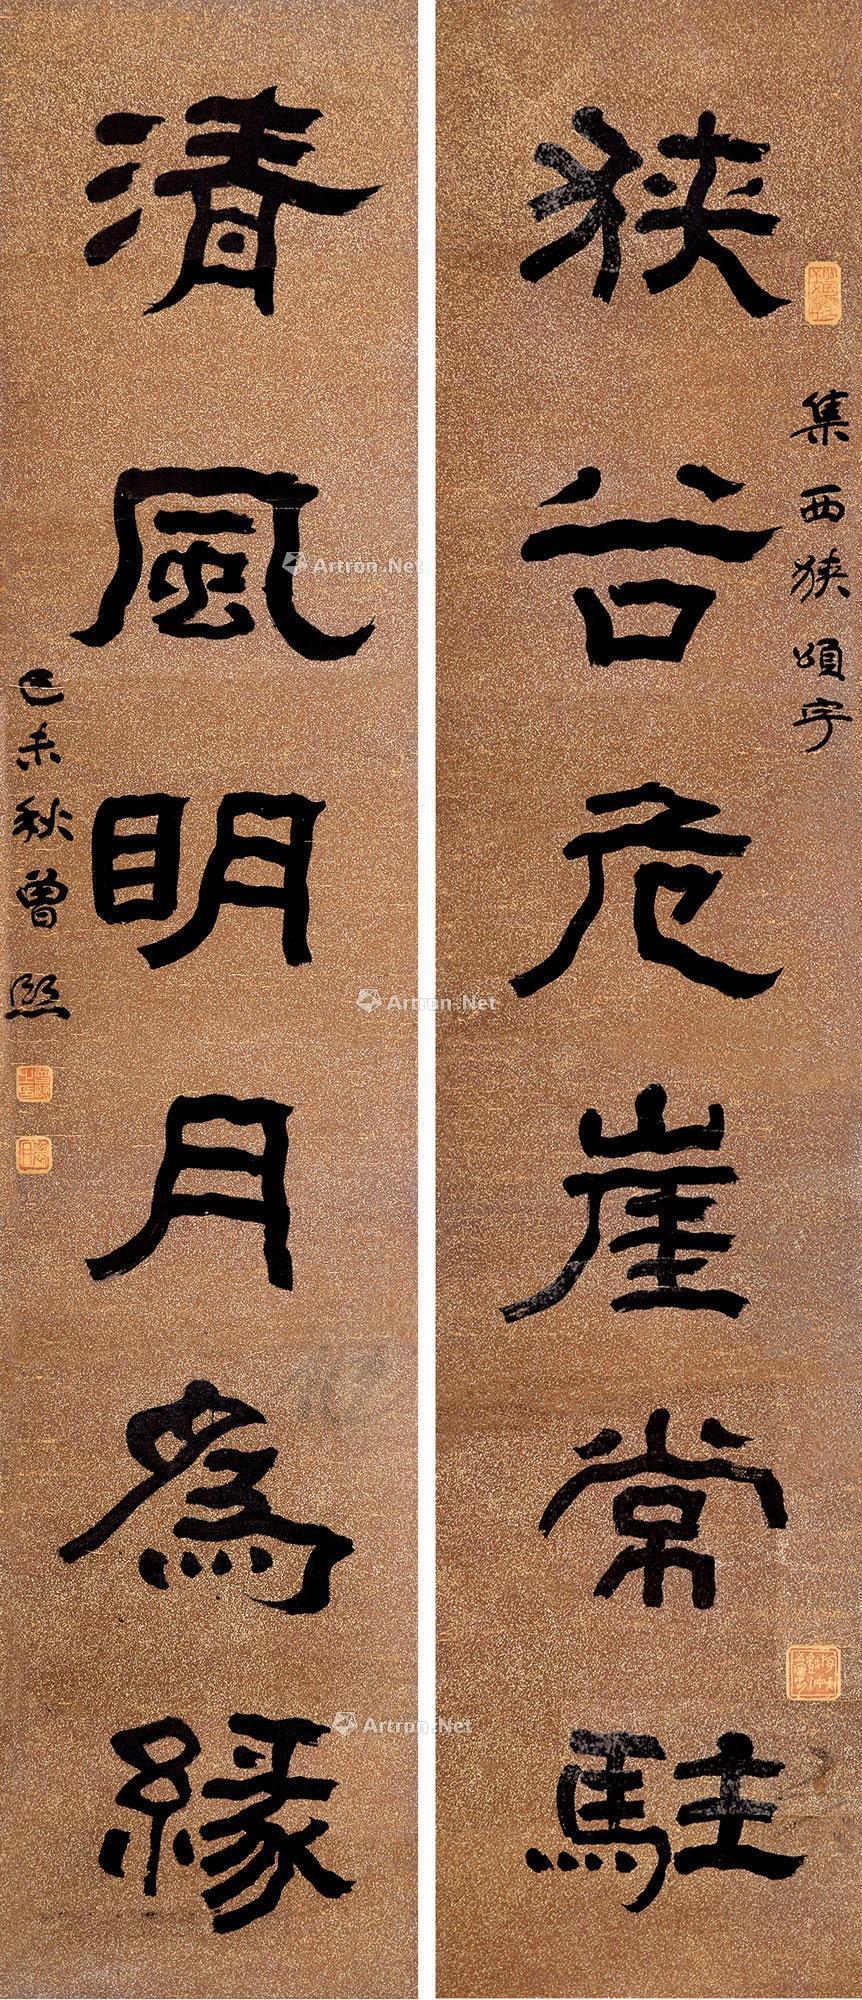 狭谷危崖常駐
集西狭頌字
清風明月為緣
己未秋曾熙
Artron.Net
Artron.Net
Artron.Net